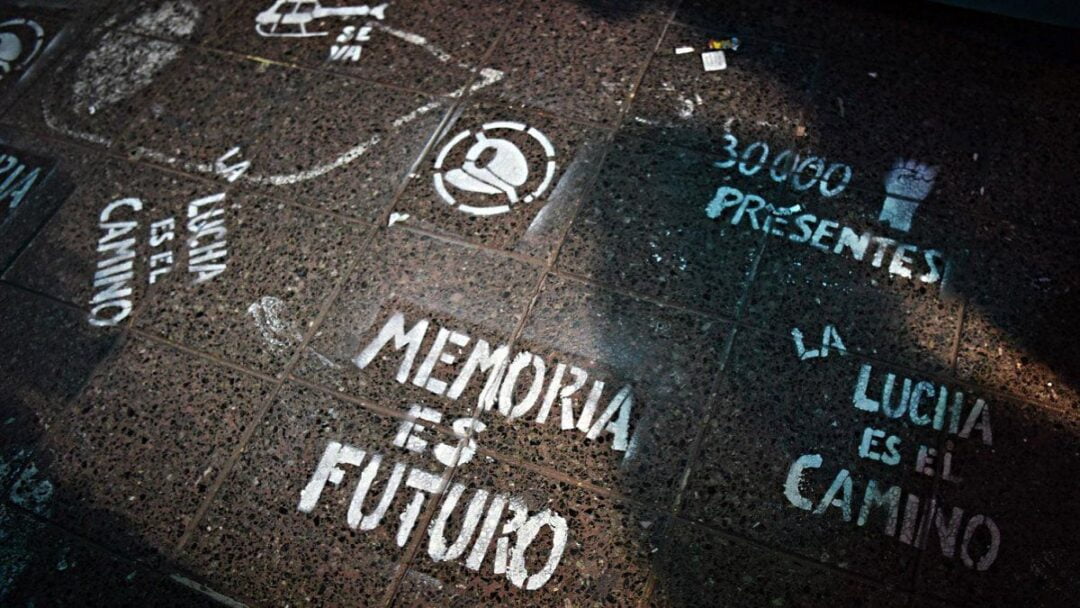 SE
VA
LA
LUCHA
ES EL
CAMINO
30000
PRESENTES
MEMORIA
ES
FUTURO
LA
LUCHA
ES EL
CAMINO